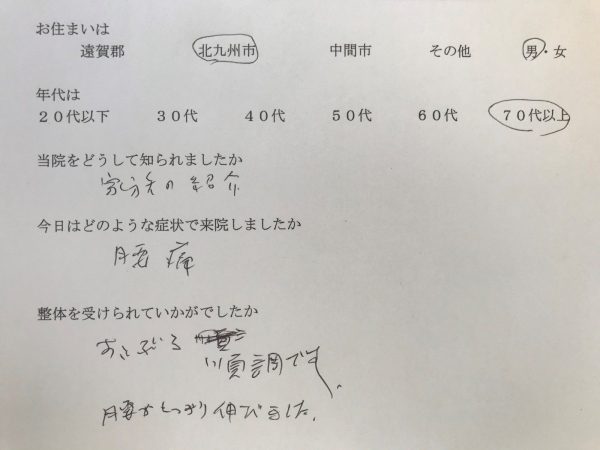 お住まいは
遠賀郡 北九州市 中間市 その他 男・女
年代は
20代以下 30代 40代 50代 60代 70代以上
当院をどうして知られましたか
家族の紹介
今日はどのような症状で来院しましたか
腰痛
整体を受けられていかがでしたか
すこぶる 順調です。
腰がしっかり伸びました。